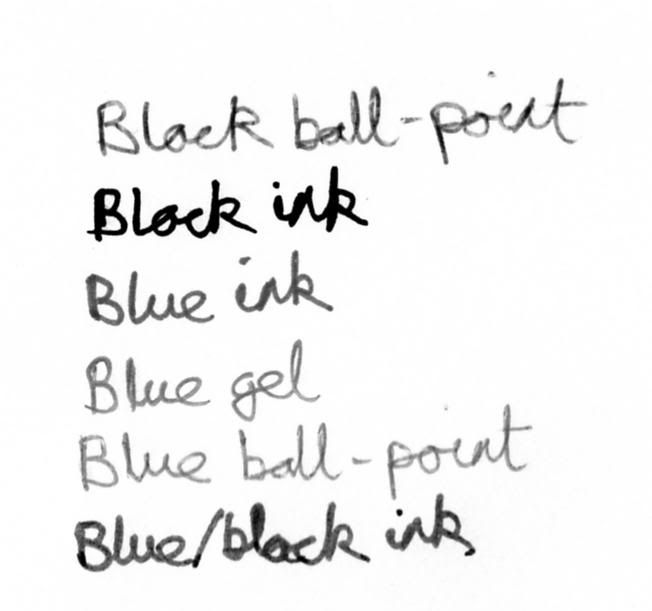 Black ball-point
Black ink
Blue ink
Blue gel
Blue ball-point
Blue/black ink